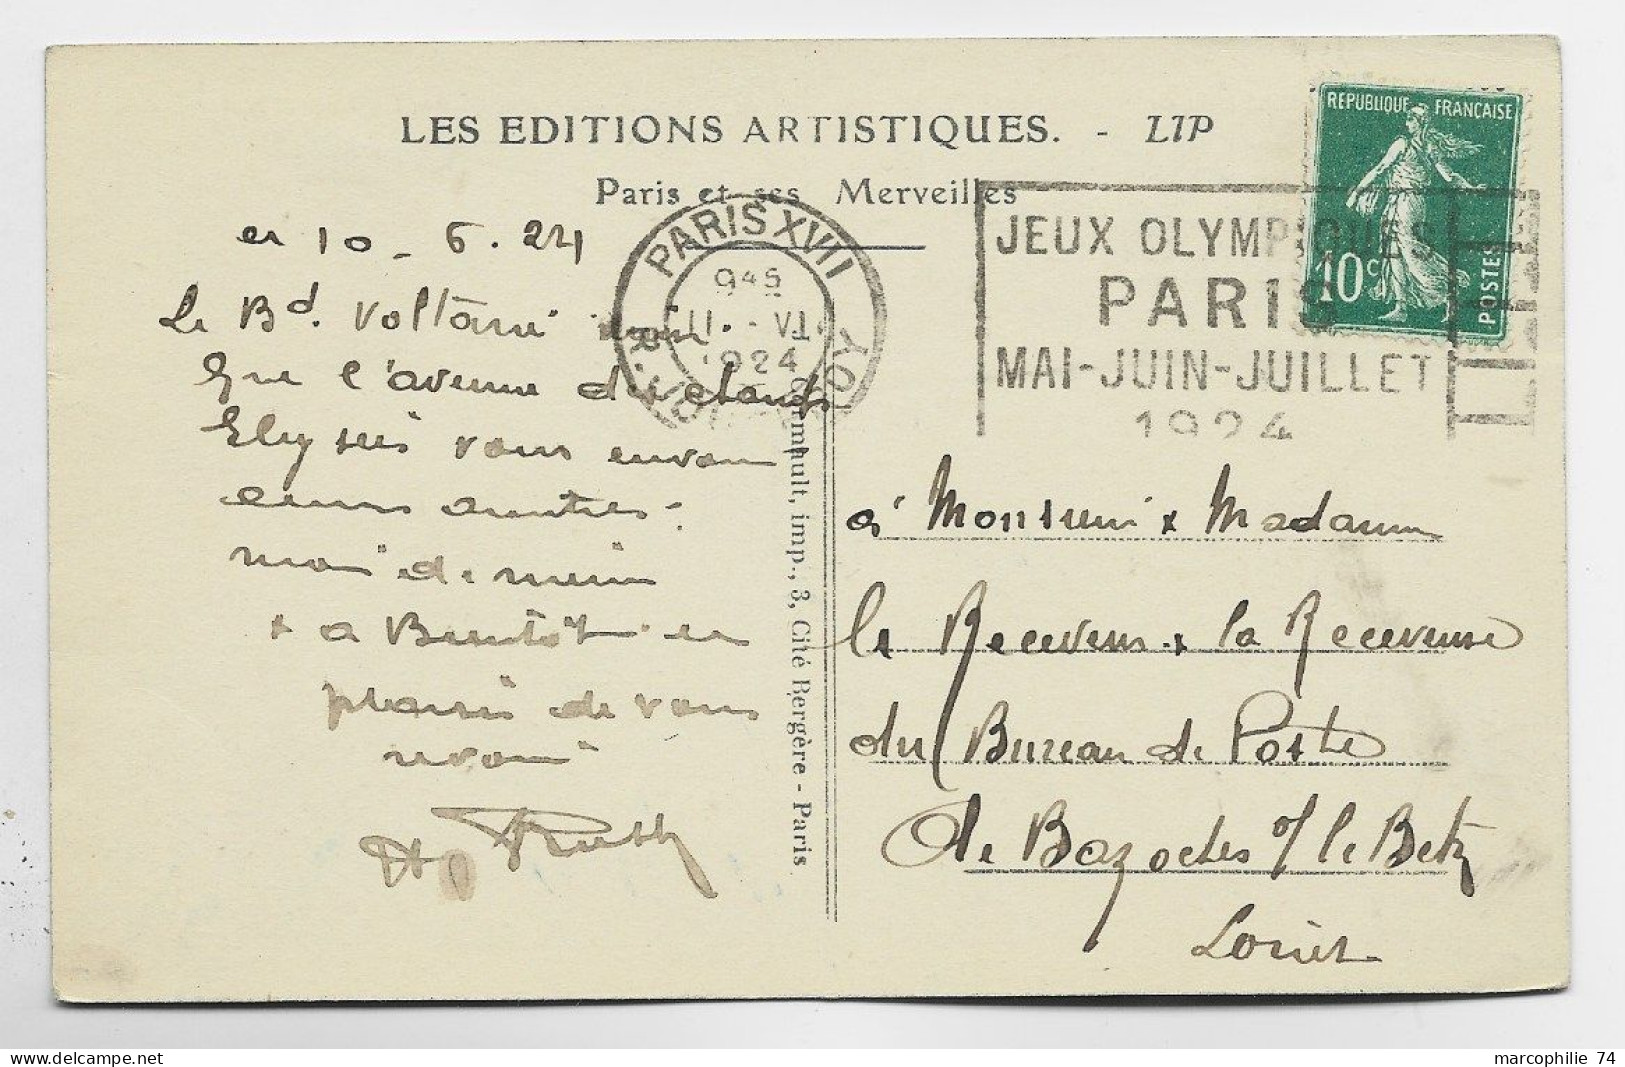 LES EDITIONS ARTISTIQUES. - LIP
Paris et ses Merveilles
REPUBLIQUE FRANÇAISE
10c
POSTES
PARIS XVII
9 45
11 - VI
1924
JEUX OLYMPIQUES
PARIS
MAI-JUIN-JUILLET
1924
10 - 6. 24
Le Bd. Voltaire
que l'avenue des champs
Elysées vous
de
+ a Bientôt
plaisir de vous
revoir
à Monsieur & Madame
le Receveur & la Receveuse
du Bureau de Poste
de Bazoches s/ le Betz
Loiret
imp., 3, Cité Bergère - Paris.
marcophilie 74